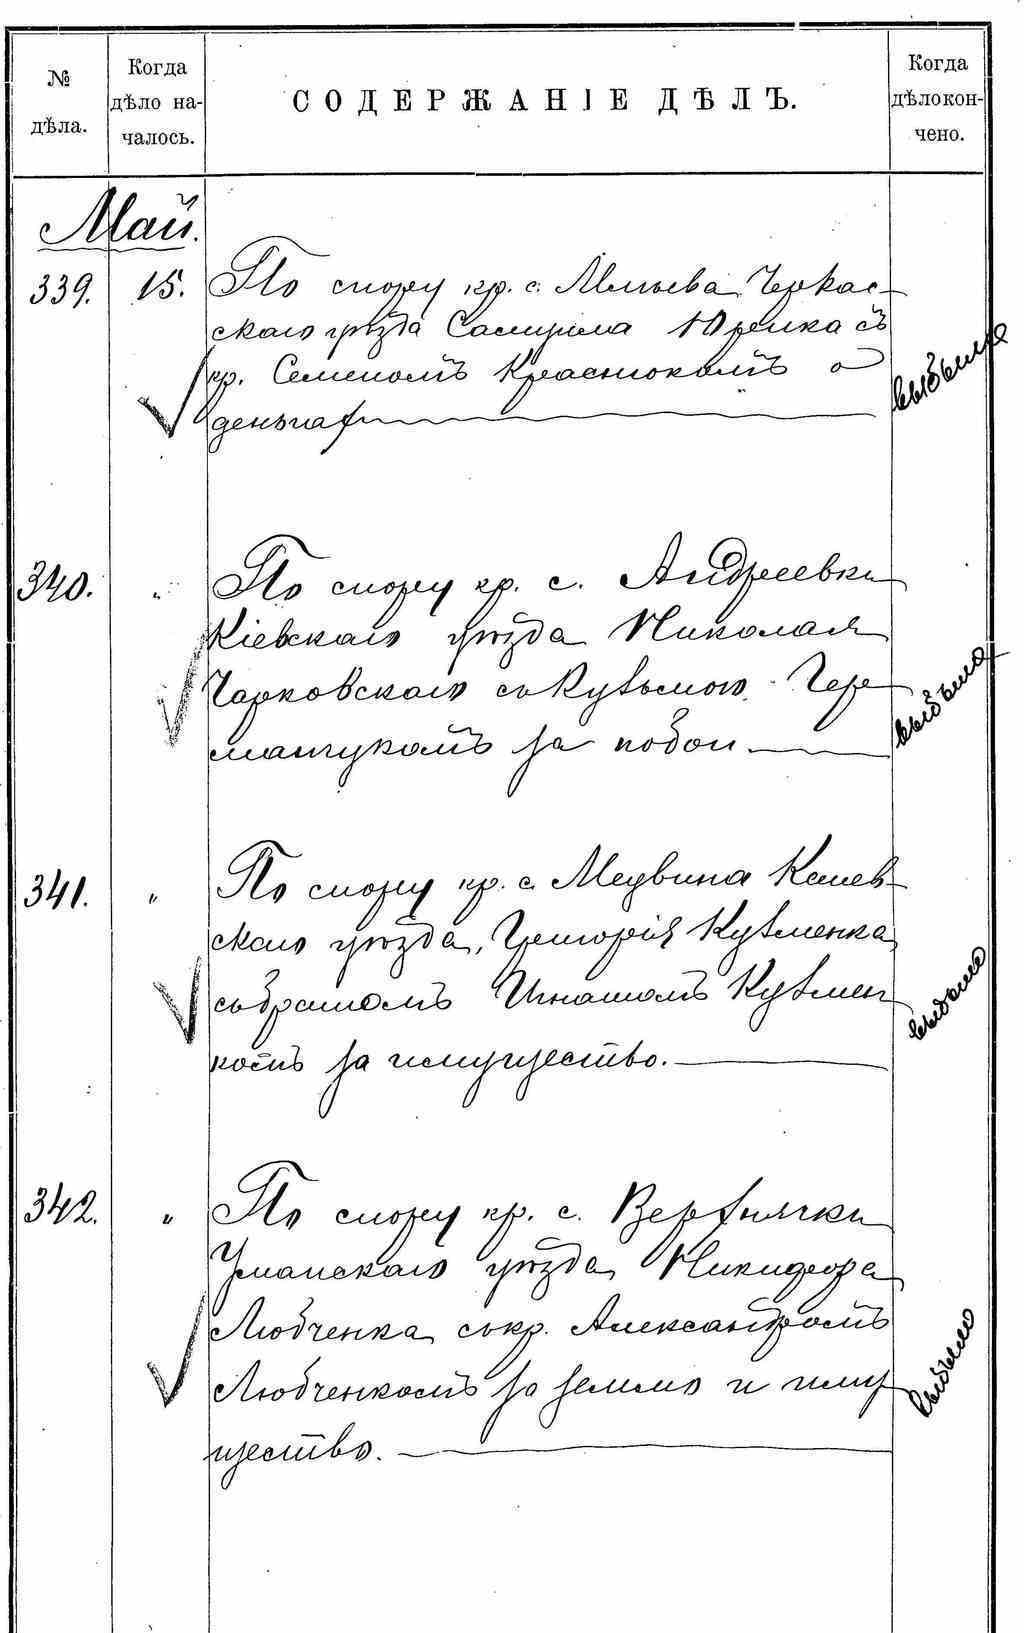 № дѣла.
Когда дѣло началось.
СОДЕРЖАНІЕ ДѢЛЪ.
Когда дѣло кончено.
Май.
339. 15. По спору кр. с. Мліева Черкас-
скаго уѣзда Самуила Юренка съ
кр. Семеномъ Краснокомъ о
деньгах
выбыло
340. „ По спору кр. с. Андреевки
Кіевскаго уѣзда Николая
Чарковскаго съ Кузьмою Гер
манчукомъ за побои
выбыло
341. „ По спору кр. с. Медвина Канев-
скаго уѣзда, Григорія Кузменка
съ братомъ Игнатомъ Кузмен
комъ за имущество.
выбыло
342. „ По спору кр. с. Верхнячки
Уманскаго уѣзда Никифора
Любченка съ кр. Александромъ
Любченкомъ за землю и иму
щество.
выбыло